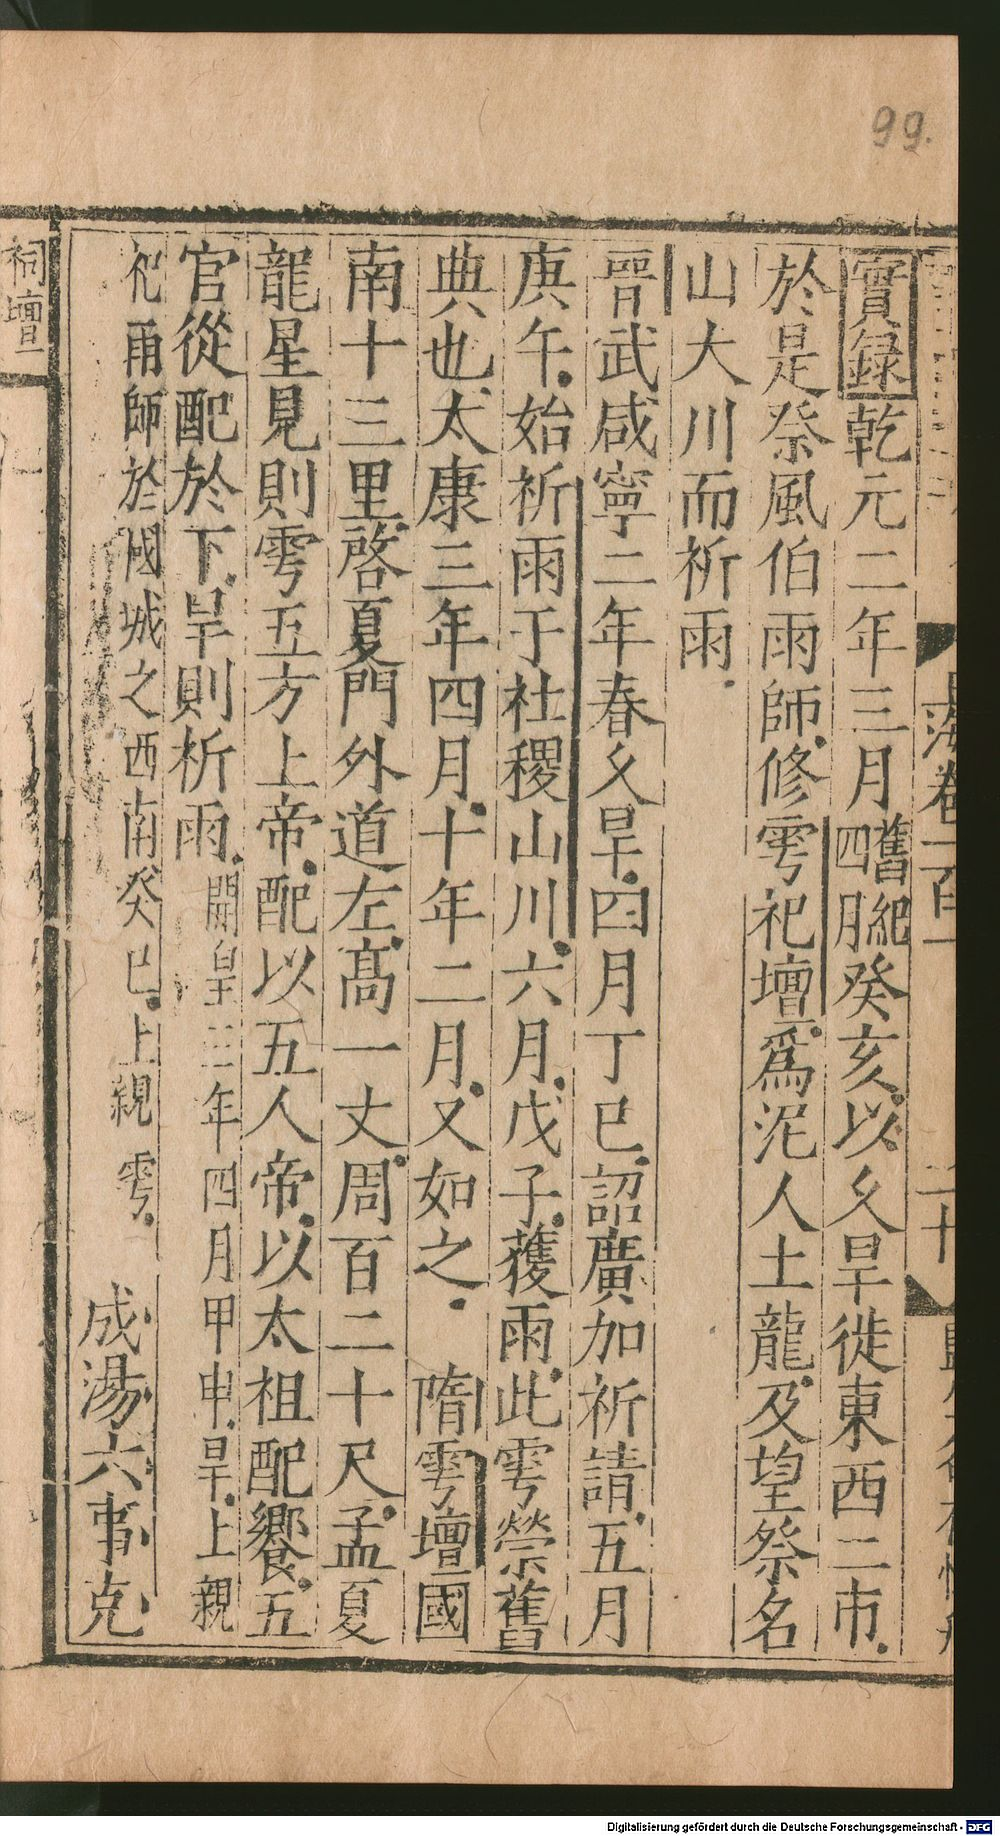 99.
實録乾元二年三月舊紀四月癸亥以久旱徙東西二市
於是祭風伯雨師修雩祀壇爲泥人土龍及望祭名
山大川而祈雨
晉武咸寧二年春久旱四月丁巳詔廣加祈請五月
庚午始祈雨于社稷山川六月戊子獲雨此雩禜舊
典也太康三年四月十年二月又如之 隋雩壇國
南十三里啓夏門外道左高一丈周百二十尺孟夏
龍星見則雩五方上帝配以五人帝以太祖配饗五
官從配於下旱則祈雨開皇三年四月甲申旱上親
祀雨師於國城之西南癸巳上親雩 成湯六事克
祠壇
海卷一百一
二十
Digitalisierung gefördert durch die Deutsche Forschungsgemeinschaft - DFG